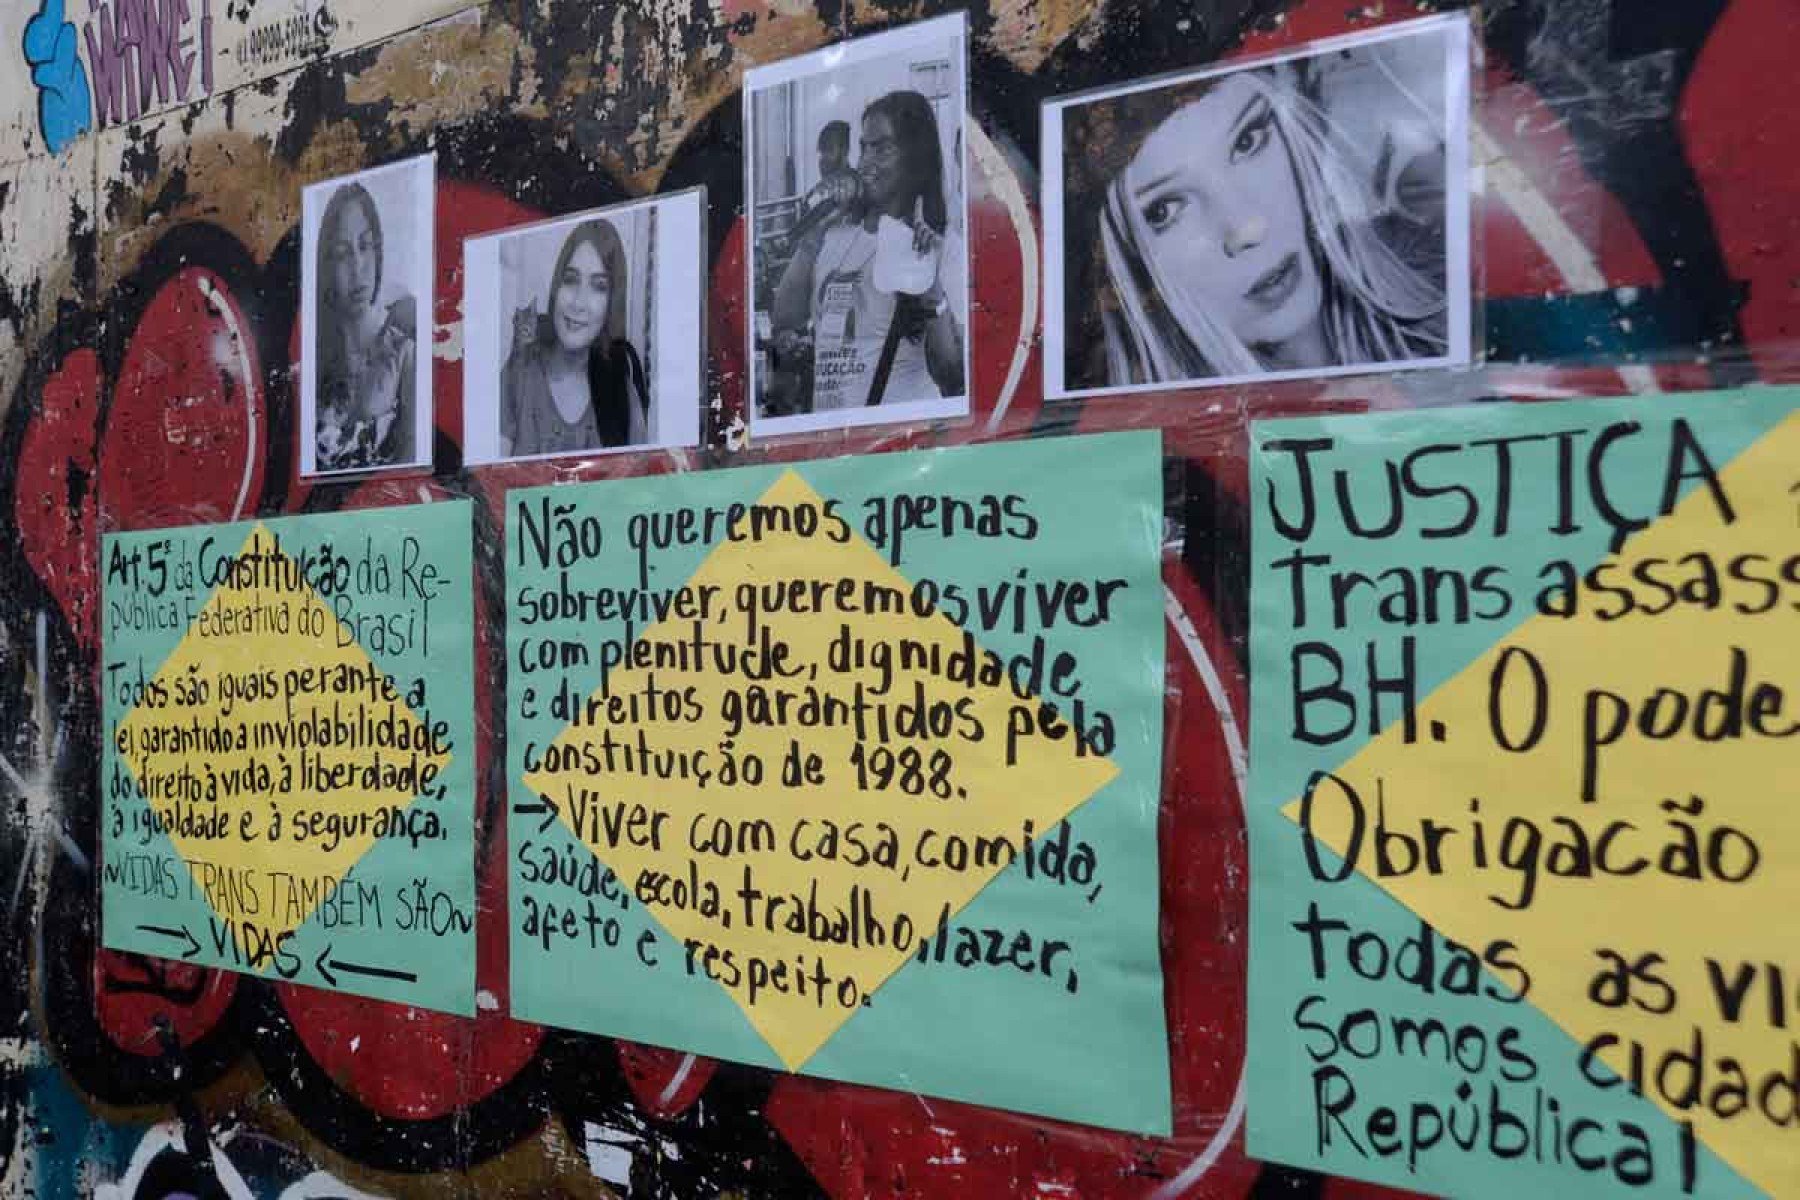 99200-5995
EDUCAÇÃO
Art. 5º da Constituição da Re-
pública Federativa do Brasil
Todos são iguais perante a
lei, garantido a inviolabilidade
do direito à vida, à liberdade,
à igualdade e à segurança.
~VIDAS TRANS TAMBÉM SÃO~
→ VIDAS ←
Não queremos apenas
sobreviver, queremos viver
com plenitude, dignidade
e direitos garantidos pela
constituição de 1988.
→ Viver com casa, comida,
saúde, escola, trabalho, lazer,
afeto e respeito.
JUSTIÇA
Trans assass
BH. O pode
Obrigacão
todas as vi
Somos cidad
República!